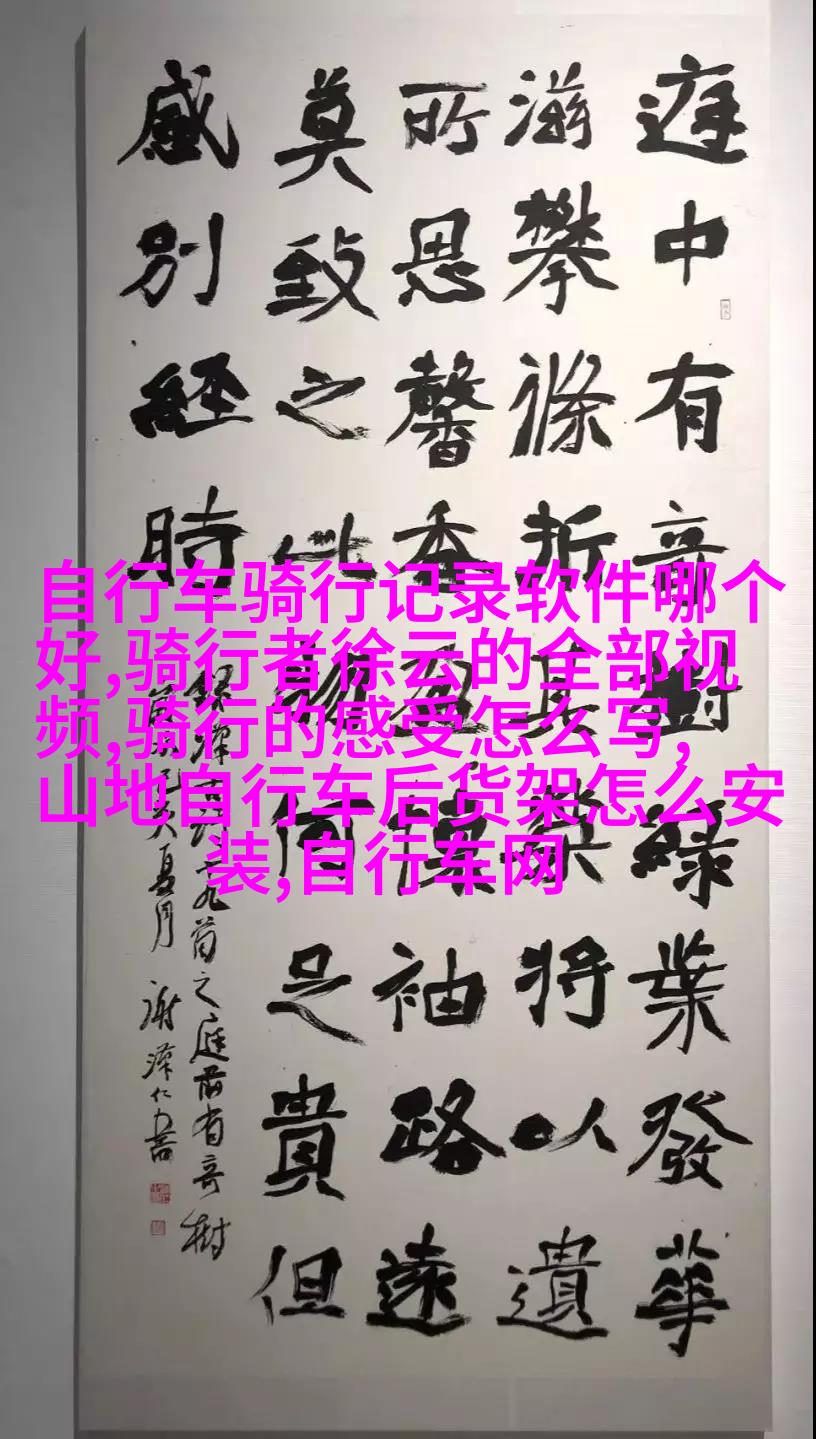 庭中有奇樹緑葉發華
滋攀條折其榮將以遺
所思馨香盈懷袖路遠
莫致之此物何足貴但
感別經時
九首之庭前有奇樹
夏月 謝澤仁書
自行车骑行记录软件哪个
好,骑行者徐云的全部视
频,骑行的感受怎么写,
山地自行车后货架怎么安
装,自行车网